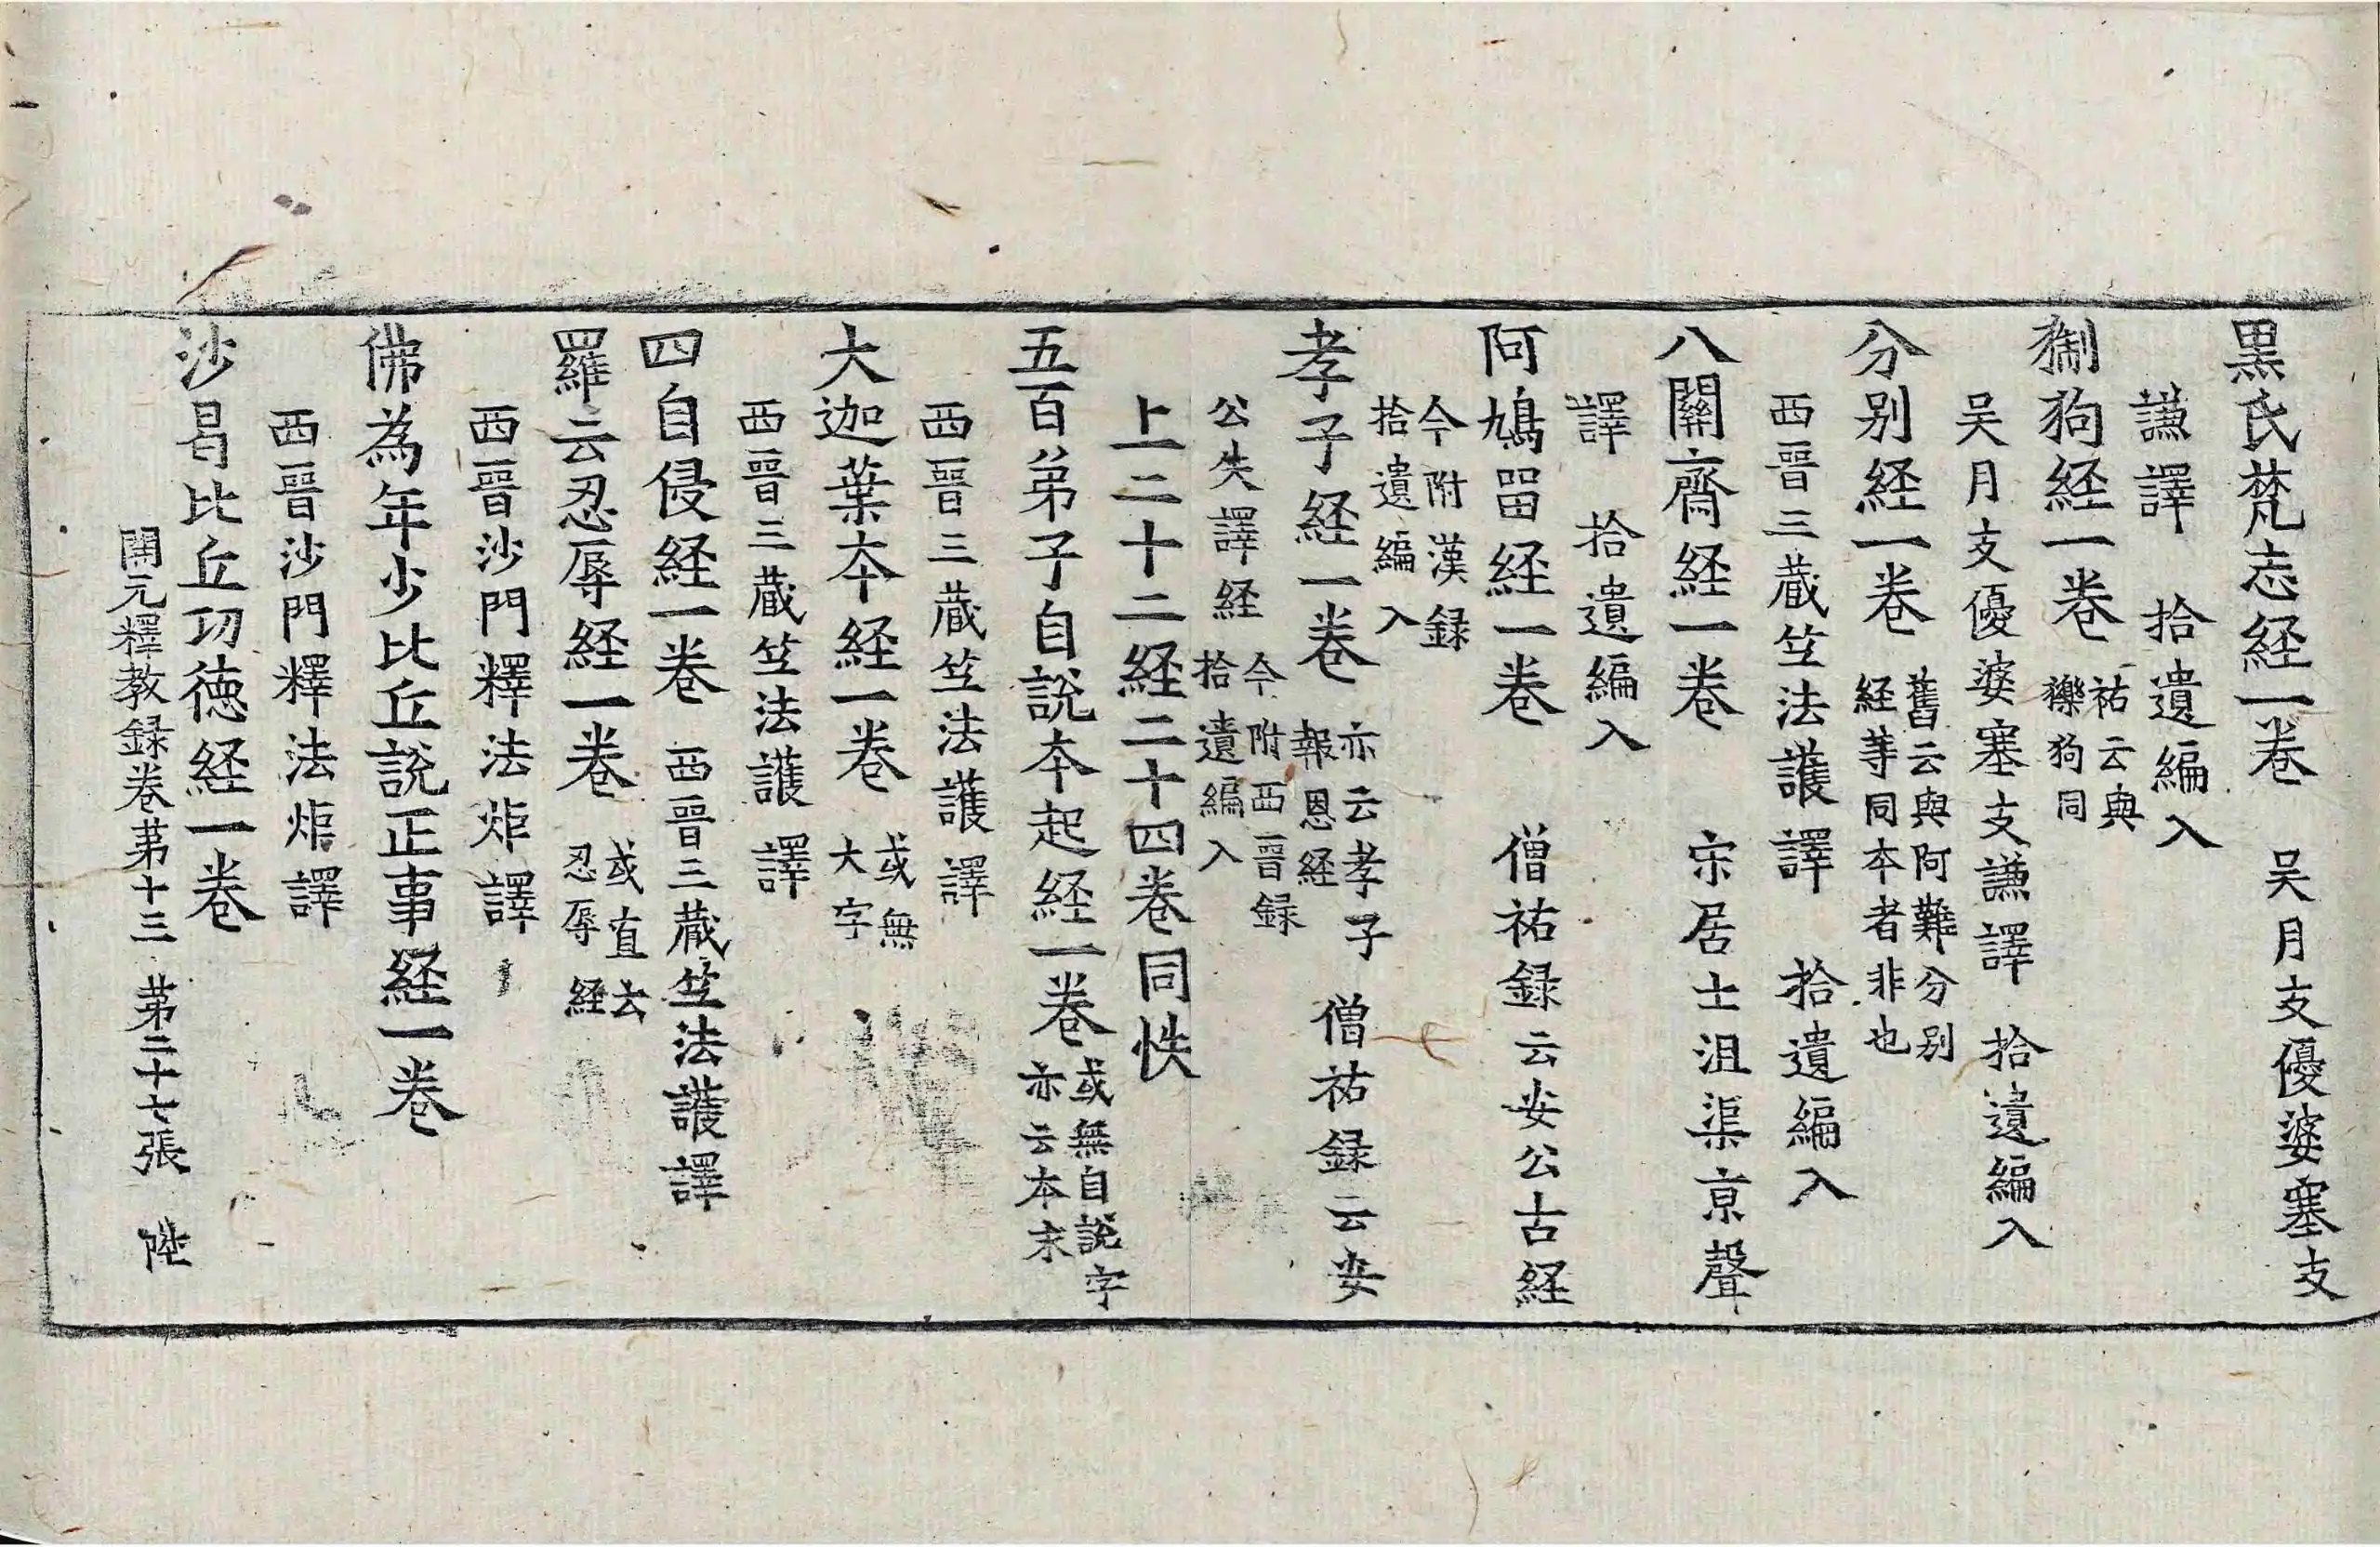 黒氏梵志経一卷　吴月支優婆塞支
謙譯　拾遺編入
猘狗経一卷　祐云與㺝狗同
吴月支優婆塞支謙譯　拾遺編入
分别経一卷　舊云與阿難分别経等同本者非也
西晉三蔵竺法護譯　拾遺編入
八關齋経一卷　宋居士沮渠京聲
譯　拾遺編入
阿鳩留経一卷　僧祐録云安公古経
今附漢録拾遺編入
孝子経一卷　亦云孝子報恩経　僧祐録云安
公失譯経　今附西晉録拾遺編入
上二十二経二十四卷同帙
五百弟子自說本起経一卷　或無自說字亦云本末
西晉三蔵竺法護譯
大迦葉本経一卷　或無大字
西晉三蔵竺法護譯
四自侵経一卷　西晉三蔵竺法護譯
羅云忍辱経一卷　或直云忍辱経
西晉沙門釋法炬譯
佛為年少比丘說正事経一卷
西晉沙門釋法炬譯
沙曷比丘功徳経一卷
開元釋教録卷第十三　第二十七張　陞